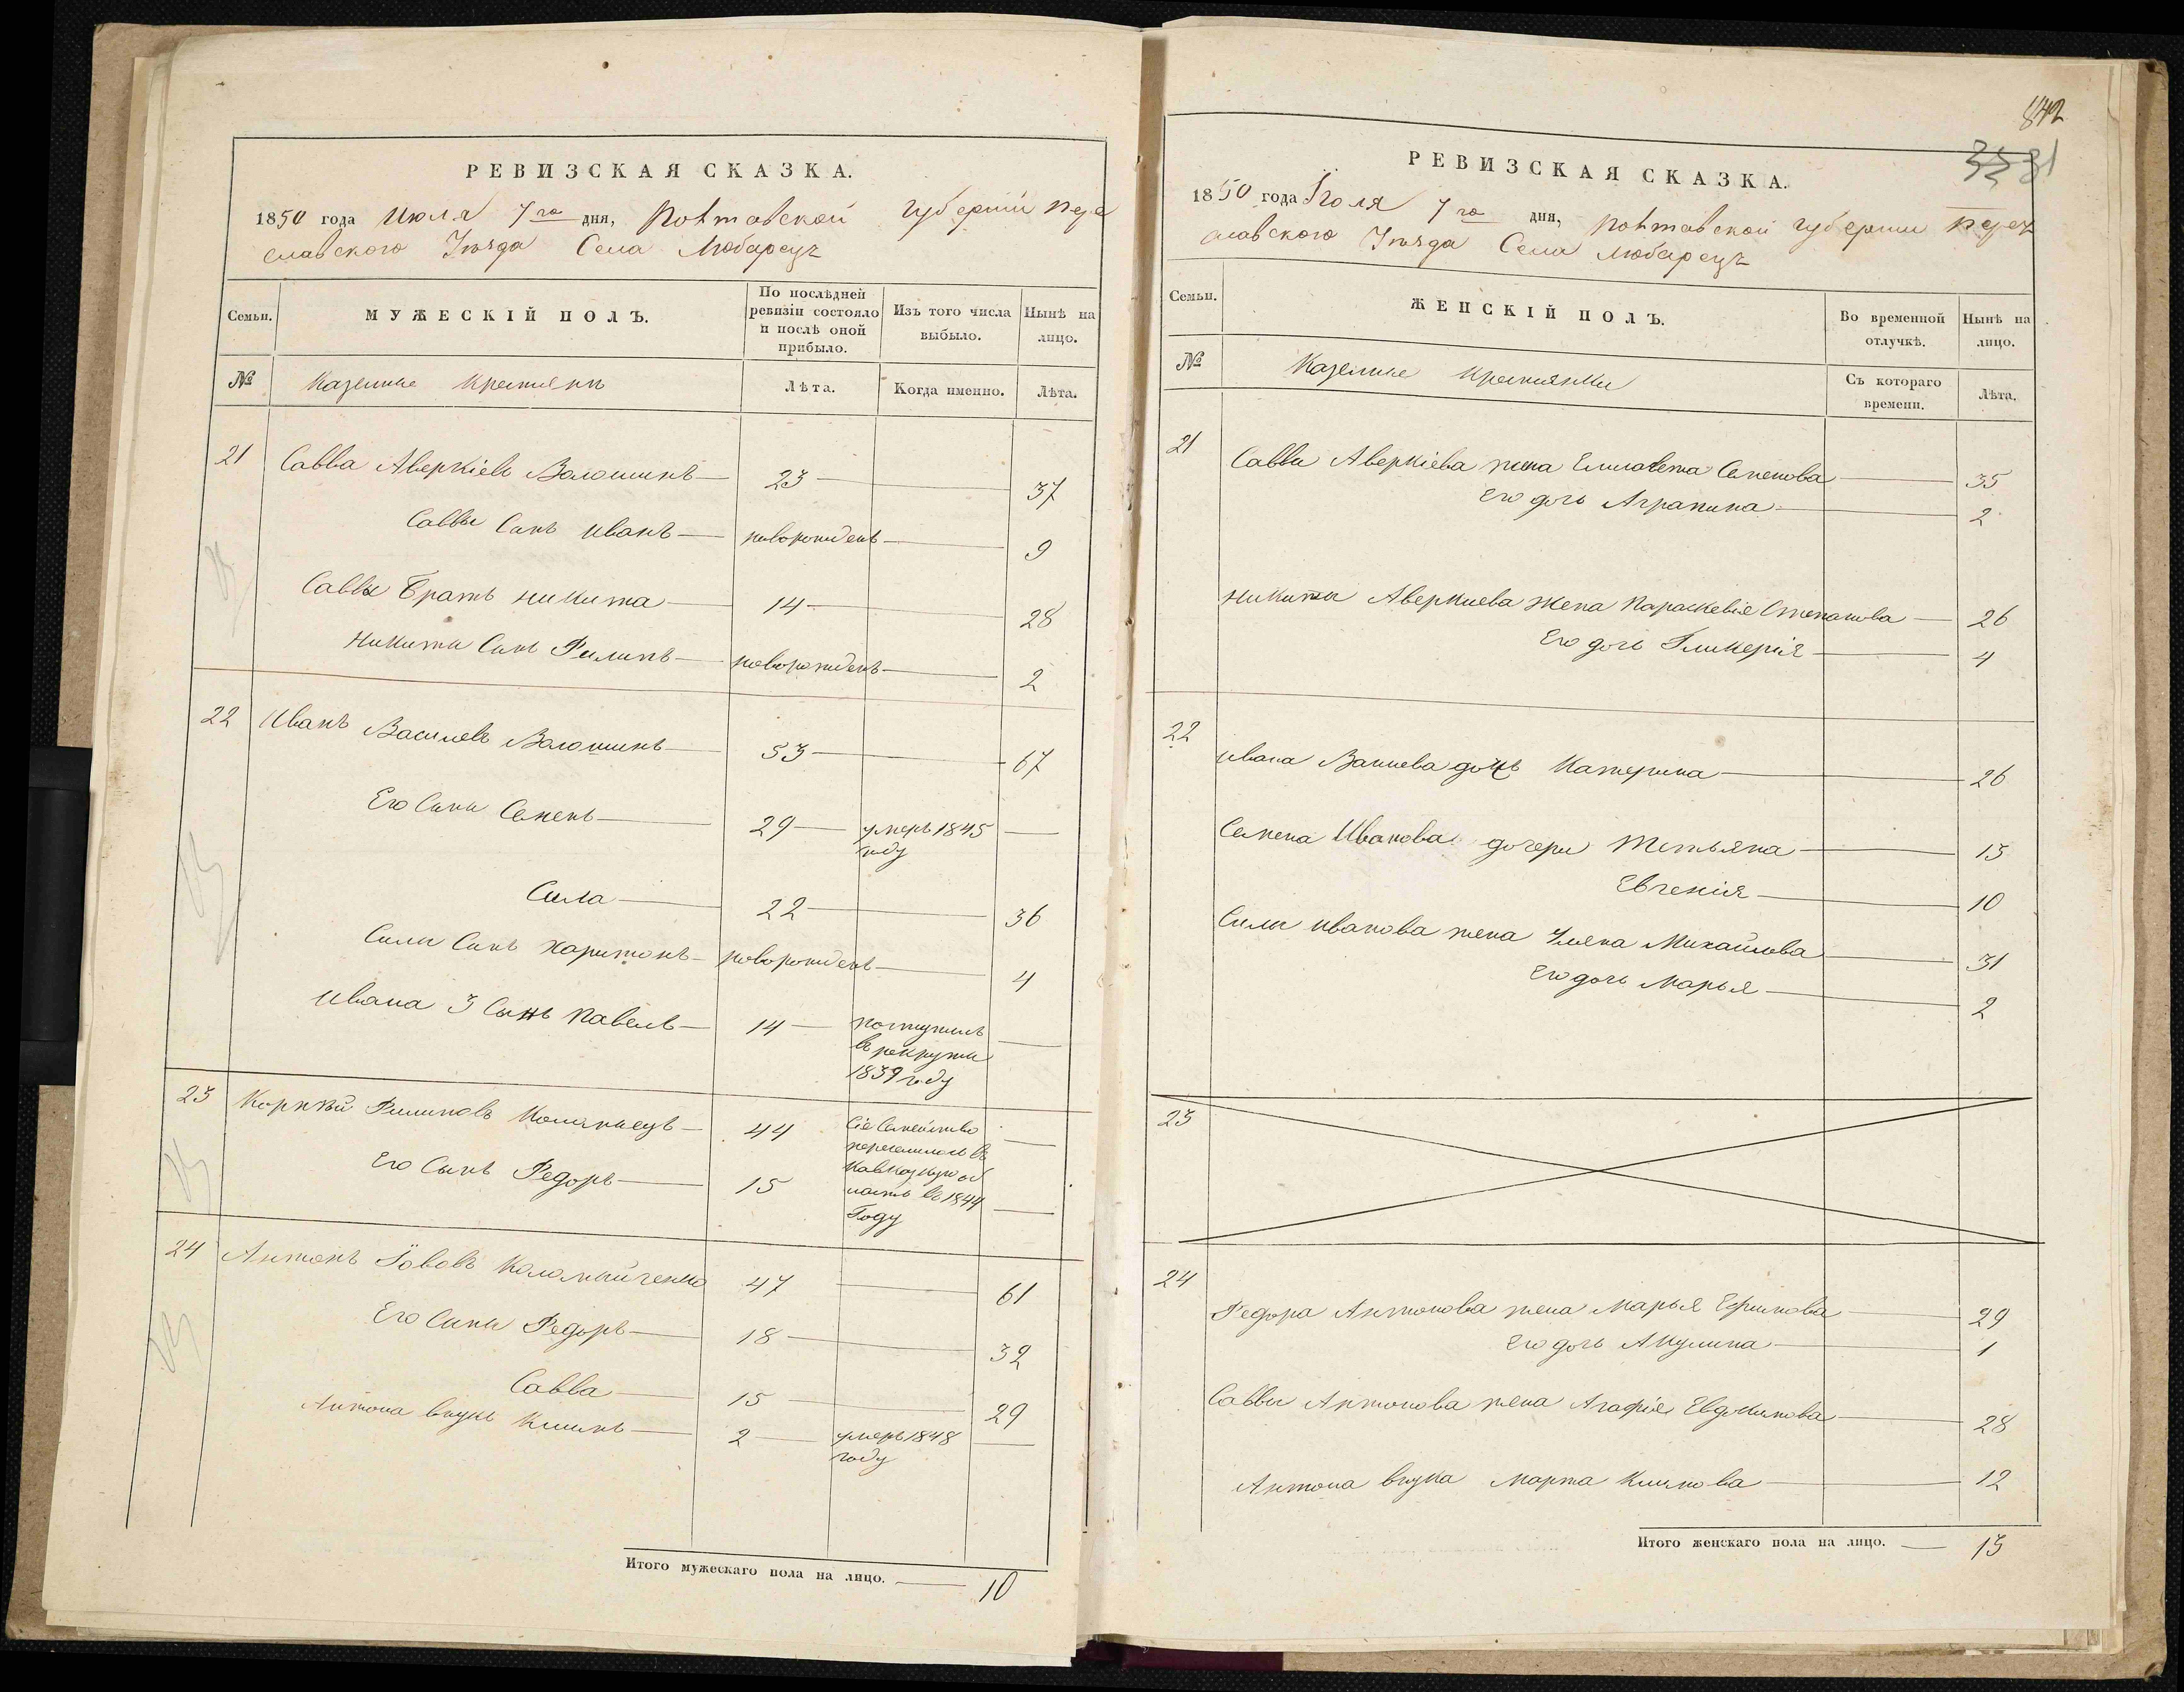 РЕВИЗСКАЯ СКАЗКА.
1850 года Июля 7го дня, Полтавской Губернии Перея
славского Уѣзда Села Любарецъ
Семьи.
МУЖЕСКІЙ ПОЛЪ.
По послѣдней ревизіи состояло и послѣ оной прибыло.
Изъ того числа выбыло.
Нынѣ на лицо.
№
Казенные Крестяни
Лѣта.
Когда именно.
Лѣта.
21 Савва Аверкіевъ Волошинъ 23 37
Саввы Синъ Иванъ новорожденъ 9
Саввы Братъ Никита 14 28
Никиты Синъ Филипъ новорожденъ 2
22 Иванъ Василевъ Волошинъ 53 67
Его Сини Семенъ 29 умеръ 1845
году
Сила 22 36
Силы Синъ Харитонъ новорожденъ 4
Ивана 3 Сынъ Павелъ 14 поступилъ
в рекруты
1839 году
23 Корнѣй Филиповъ 44 Сіе Семейство
переселилось въ
Его Сынъ Федоръ 15 Кавказкую об
ласть въ 1844
Году
24 Антонъ Іововъ Коломыйченко 47 61
Его Сини Федоръ 18 32
Савва 15 29
Антона внукъ Климъ 2 умеръ 1848
году
Итого мужескаго пола на лицо. 10
842
31
РЕВИЗСКАЯ СКАЗКА.
1850 года Іюля 7го дня, Полтавской Губернии Перея
славского Уѣзда Села Любарецъ
Семьи.
ЖЕНСКІЙ ПОЛЪ.
Во временной отлучкѣ.
Нынѣ на лицо.
№
Казенные Крестянки
Съ котораго времени.
Лѣта.
21
Саввы Аверкіева жена Елисавета Семенова 35
Его дочь Аграпина 2
Никиты Аверкиева Жена Параскевія Степанова 26
Его дочь Гликерія 4
22
Ивана дочь Катерина 26
Семена Иванова дочери Тетьяна 13
Евгенія 10
Силы Иванова жена Уляна Михайлова 31
Его дочь Марья 2
23
24
Федора Антонова жена Марья Ефимова 29
Его дочь Акулина 1
Саввы Антонова жена Агафія Евдокимова 28
Антона внука Марта Климова 12
Итого женскаго пола на лицо. 13